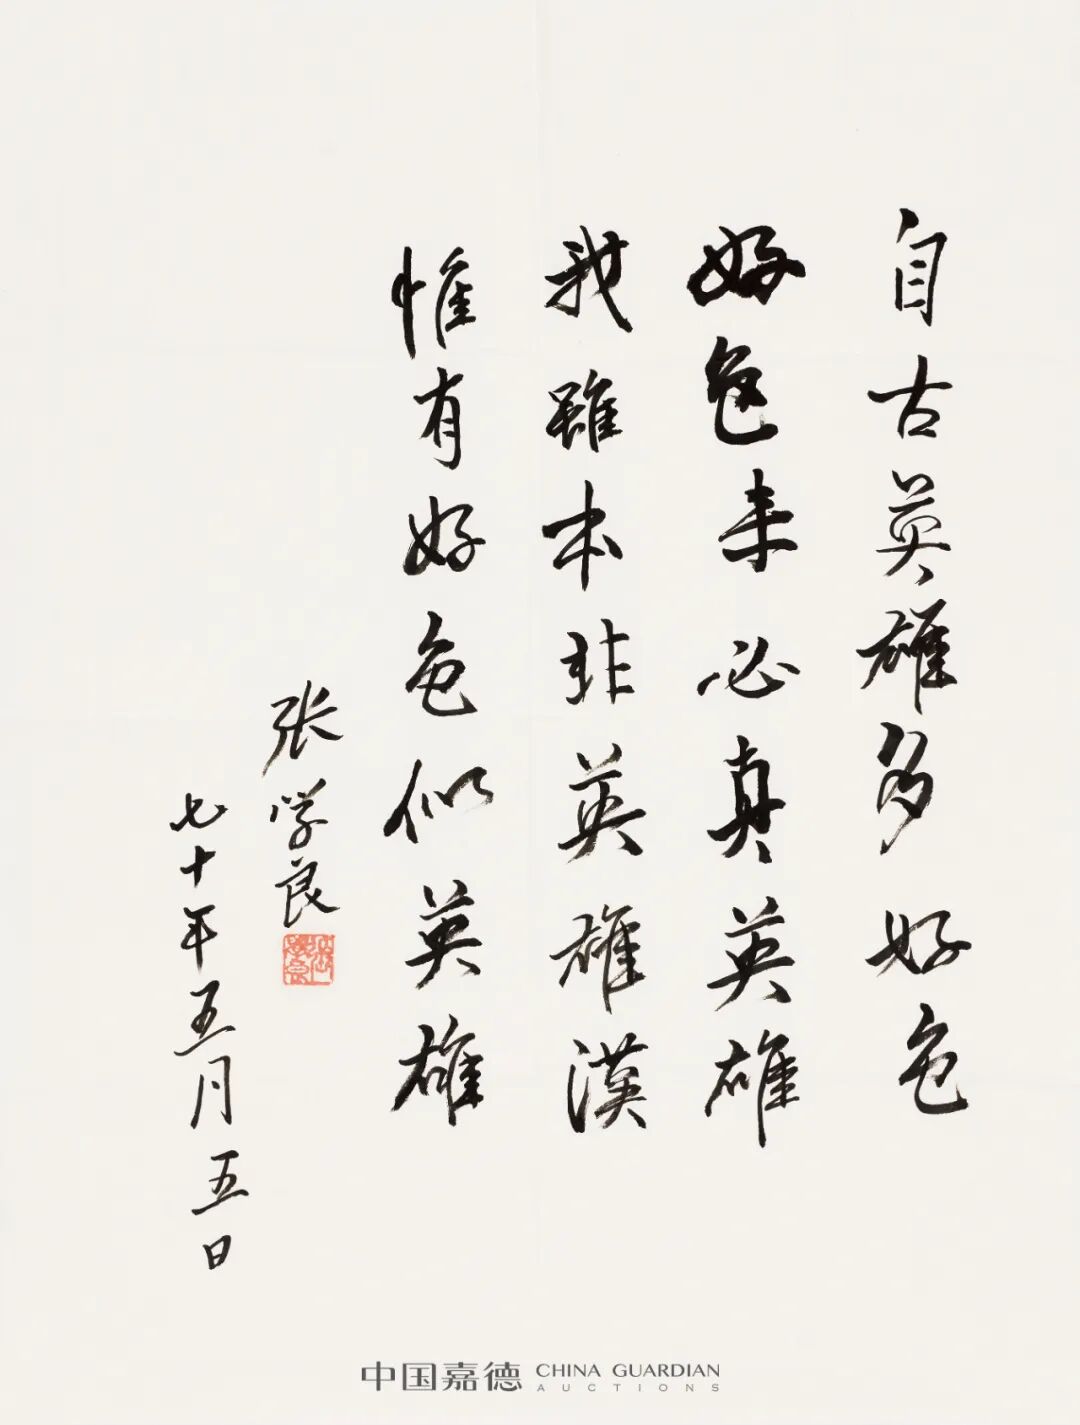 自古英雄多好色
好色未必真英雄
我雖本非英雄漢
惟有好色似英雄
张学良
七十年五月五日
中国嘉德 CHINA GUARDIAN
AUCTIONS